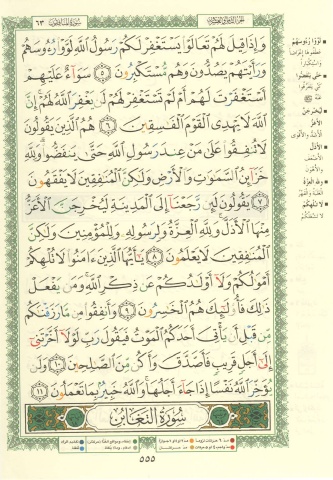 سورة المنافقون ٦٣
الجزء الثامن والعشرون
وَإِذَا قِيلَ لَهُمْ تَعَالَوْا۟ يَسْتَغْفِرْ لَكُمْ رَسُولُ ٱللَّهِ لَوَّوْا۟ رُءُوسَهُمْ
وَرَأَيْتَهُمْ يَصُدُّونَ وَهُم مُّسْتَكْبِرُونَ ٥ سَوَآءٌ عَلَيْهِمْ
أَسْتَغْفَرْتَ لَهُمْ أَمْ لَمْ تَسْتَغْفِرْ لَهُمْ لَن يَغْفِرَ ٱللَّهُ لَهُمْ إِنَّ
ٱللَّهَ لَا يَهْدِى ٱلْقَوْمَ ٱلْفَـٰسِقِينَ ٦ هُمُ ٱلَّذِينَ يَقُولُونَ
لَا تُنفِقُوا۟ عَلَىٰ مَنْ عِندَ رَسُولِ ٱللَّهِ حَتَّىٰ يَنفَضُّوا۟ وَلِلَّهِ
خَزَآئِنُ ٱلسَّمَـٰوَٰتِ وَٱلْأَرْضِ وَلَـٰكِنَّ ٱلْمُنَـٰفِقِينَ لَا يَفْقَهُونَ
٧ يَقُولُونَ لَئِن رَّجَعْنَآ إِلَى ٱلْمَدِينَةِ لَيُخْرِجَنَّ ٱلْأَعَزُّ
مِنْهَا ٱلْأَذَلَّ وَلِلَّهِ ٱلْعِزَّةُ وَلِرَسُولِهِۦ وَلِلْمُؤْمِنِينَ وَلَـٰكِنَّ
ٱلْمُنَـٰفِقِينَ لَا يَعْلَمُونَ ٨ يَـٰٓأَيُّهَا ٱلَّذِينَ ءَامَنُوا۟ لَا تُلْهِكُمْ
أَمْوَٰلُكُمْ وَلَآ أَوْلَـٰدُكُمْ عَن ذِكْرِ ٱللَّهِ وَمَن يَفْعَلْ
ذَٰلِكَ فَأُو۟لَـٰٓئِكَ هُمُ ٱلْخَـٰسِرُونَ ٩ وَأَنفِقُوا۟ مِن مَّا رَزَقْنَـٰكُم
مِّن قَبْلِ أَن يَأْتِىَ أَحَدَكُمُ ٱلْمَوْتُ فَيَقُولَ رَبِّ لَوْلَآ أَخَّرْتَنِىٓ
إِلَىٰٓ أَجَلٍ قَرِيبٍ فَأَصَّدَّقَ وَأَكُن مِّنَ ٱلصَّـٰلِحِينَ ١٠ وَلَن
يُؤَخِّرَ ٱللَّهُ نَفْسًا إِذَا جَآءَ أَجَلُهَا وَٱللَّهُ خَبِيرٌۢ بِمَا تَعْمَلُونَ ١١
سُورَةُ التَّغَابُنِ
لَوَّوْا رُءُوسَهُمْ
حَتَّى يَنفَضُّوا
لَيُخْرِجَنَّ
الأَعَزُّ
الأَذَلَّ
لا تُلْهِكُمْ
٥٥٥